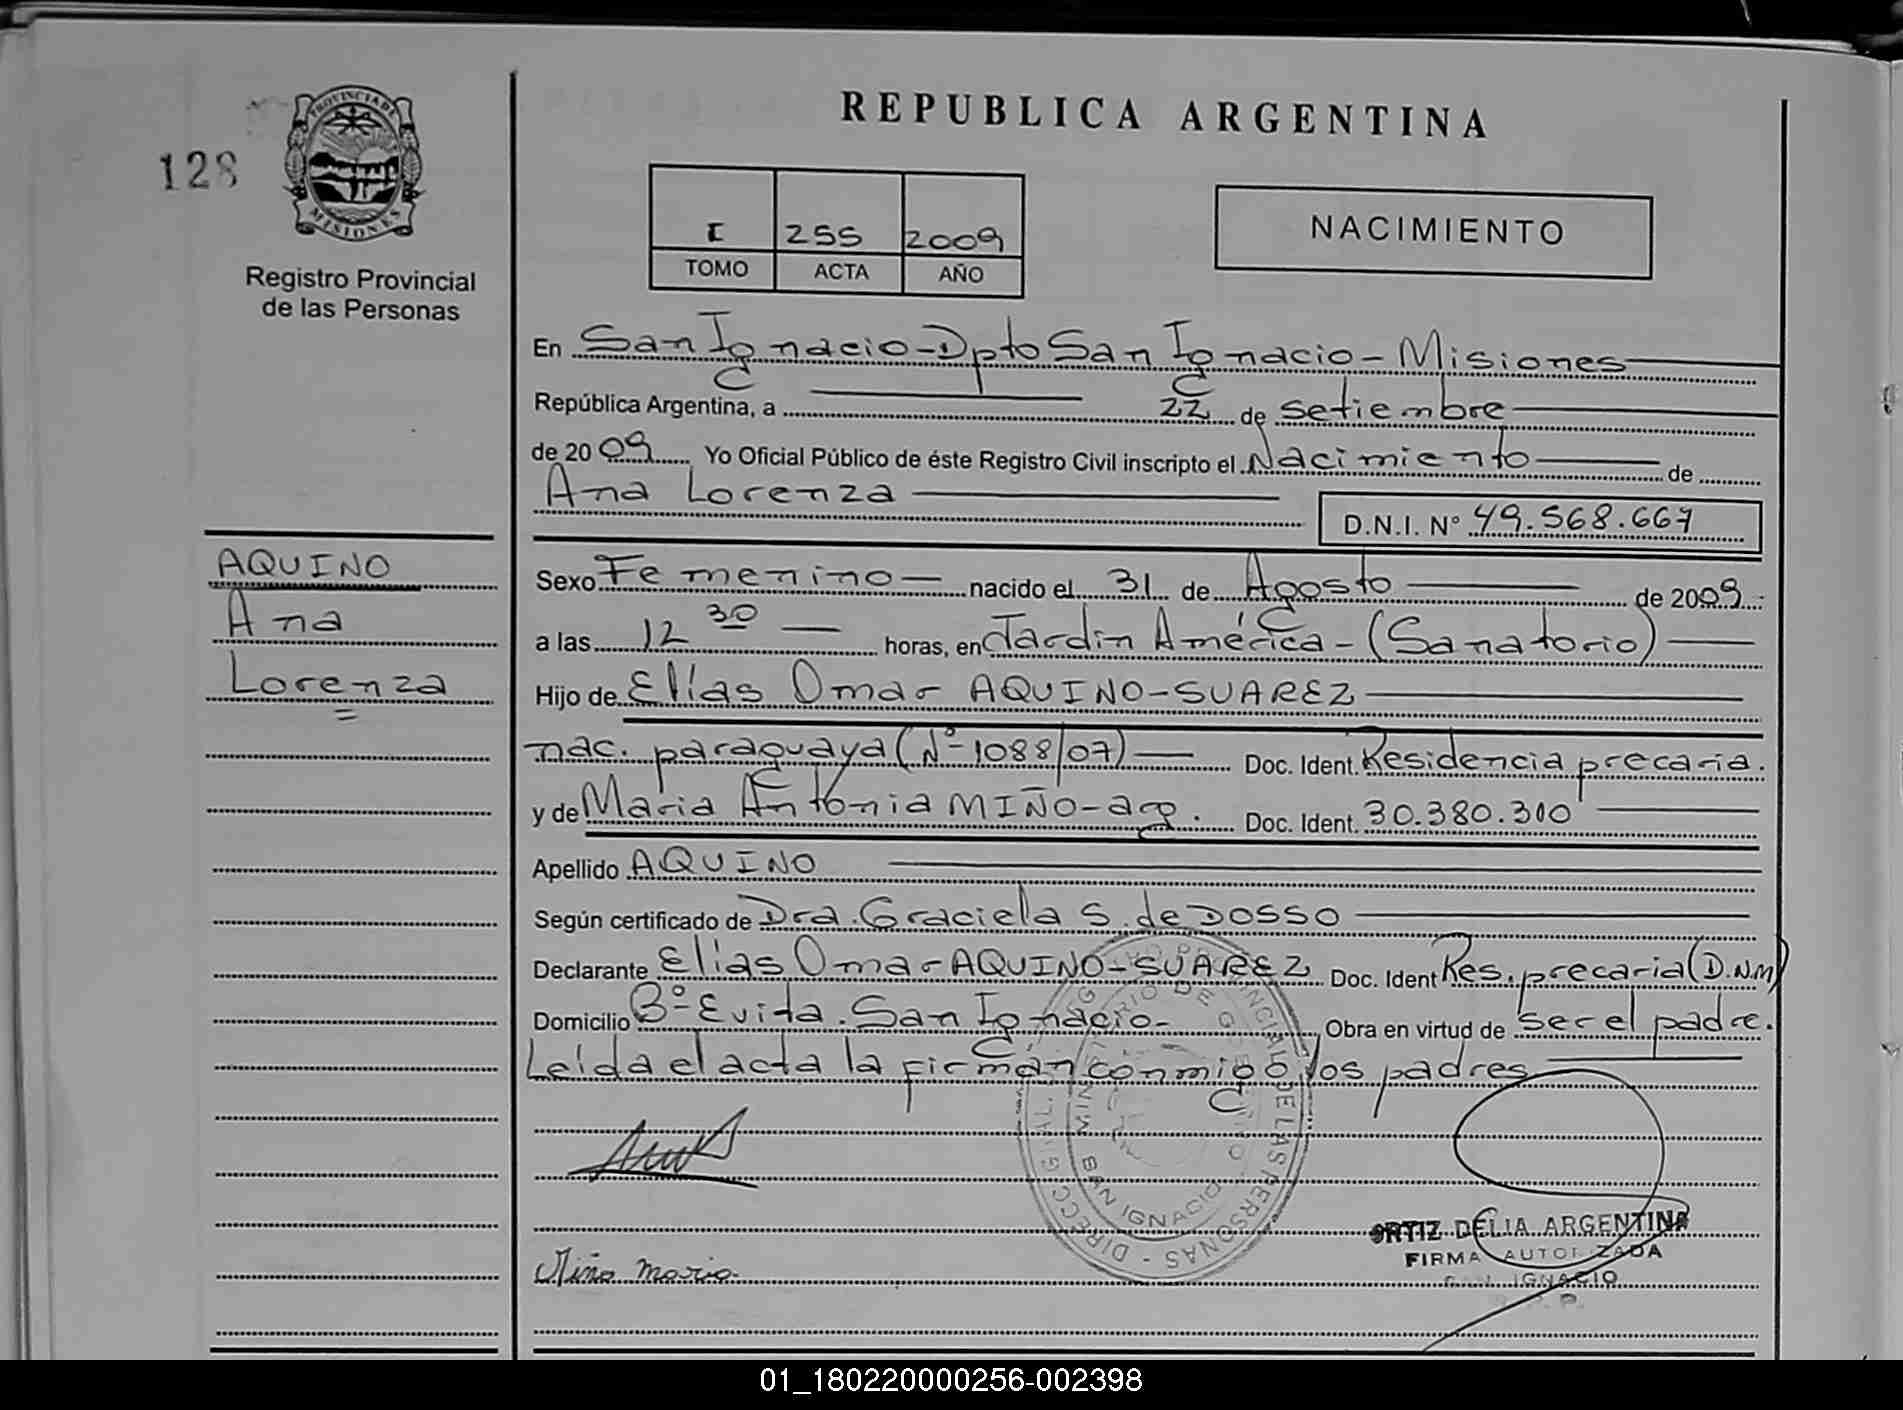 128
PROVINCIA DE
MISIONES
Registro Provincial
de las Personas
REPUBLICA ARGENTINA
I 255 2009
TOMO ACTA AÑO
NACIMIENTO
En San Ignacio - Dpto San Ignacio - Misiones
República Argentina, a 22 de Setiembre
de 2009 Yo Oficial Público de éste Registro Civil inscripto el Nacimiento de
Ana Lorenza
D.N.I. Nº 49.568.667
AQUINO
Ana
Lorenza
Sexo Femenino nacido el 31 de Agosto de 2009
a las 12 30 horas, en Jardin América - (Sanatorio)
Hijo de Elías Omar AQUINO-SUAREZ
nac. paraguaya (Nº 1088/07) Doc. Ident. Residencia precaria.
y de Maria Antonia MIÑO - arg. Doc. Ident. 30.380.310
Apellido AQUINO
Según certificado de Dra. Graciela S. de DOSSO
Declarante Elías Omar AQUINO-SUAREZ Doc. Ident Res. precaria (D.N.M)
Domicilio Bº Evita. San Ignacio - Obra en virtud de ser el padre.
Leída el acta la firman conmigo los padres
DIRECC. GRAL. REGISTRO PROVINCIAL DE LAS PERSONAS
MINISTERIO DE GOBIERNO
SAN IGNACIO
Miño maria.
ORTIZ DELIA ARGENTINA
FIRMA AUTORIZADA
SAN IGNACIO
01_180220000256-002398